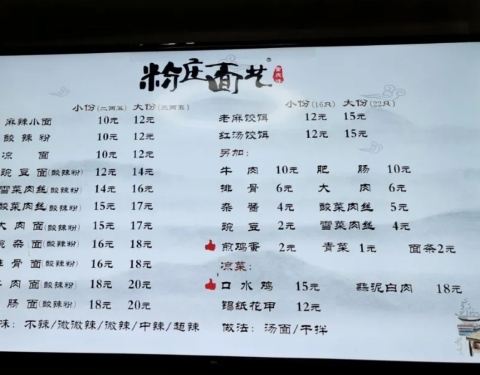 粉庄面艺
小份(二两五) 大份(三两五) 小份(16只) 大份(22只)
麻辣小面 10元 12元 老麻饺饵 12元 15元
酸辣粉 10元 12元 红汤饺饵 12元 15元
凉面 10元 12元 另加:
豌豆面(酸辣粉) 12元 14元 牛肉 10元 肥肠 10元
雪菜肉丝(酸辣粉) 14元 16元 排骨 6元 大肉 6元
酸菜肉丝(酸辣粉) 15元 17元 杂酱 4元 酸菜肉丝 5元
大肉面(酸辣粉) 15元 17元 豌豆 2元 雪菜肉丝 4元
豌杂面(酸辣粉) 16元 18元 煎鸡蛋 2元 青菜 1元 面条2元
排骨面(酸辣粉) 16元 18元 凉菜:
牛肉面(酸辣粉) 18元 20元 口水鸡 15元 蒜泥白肉 18元
肠面(酸辣粉) 18元 20元 锡纸花甲 12元
味:不辣/微微辣/微辣/中辣/超辣 做法:汤面/干拌